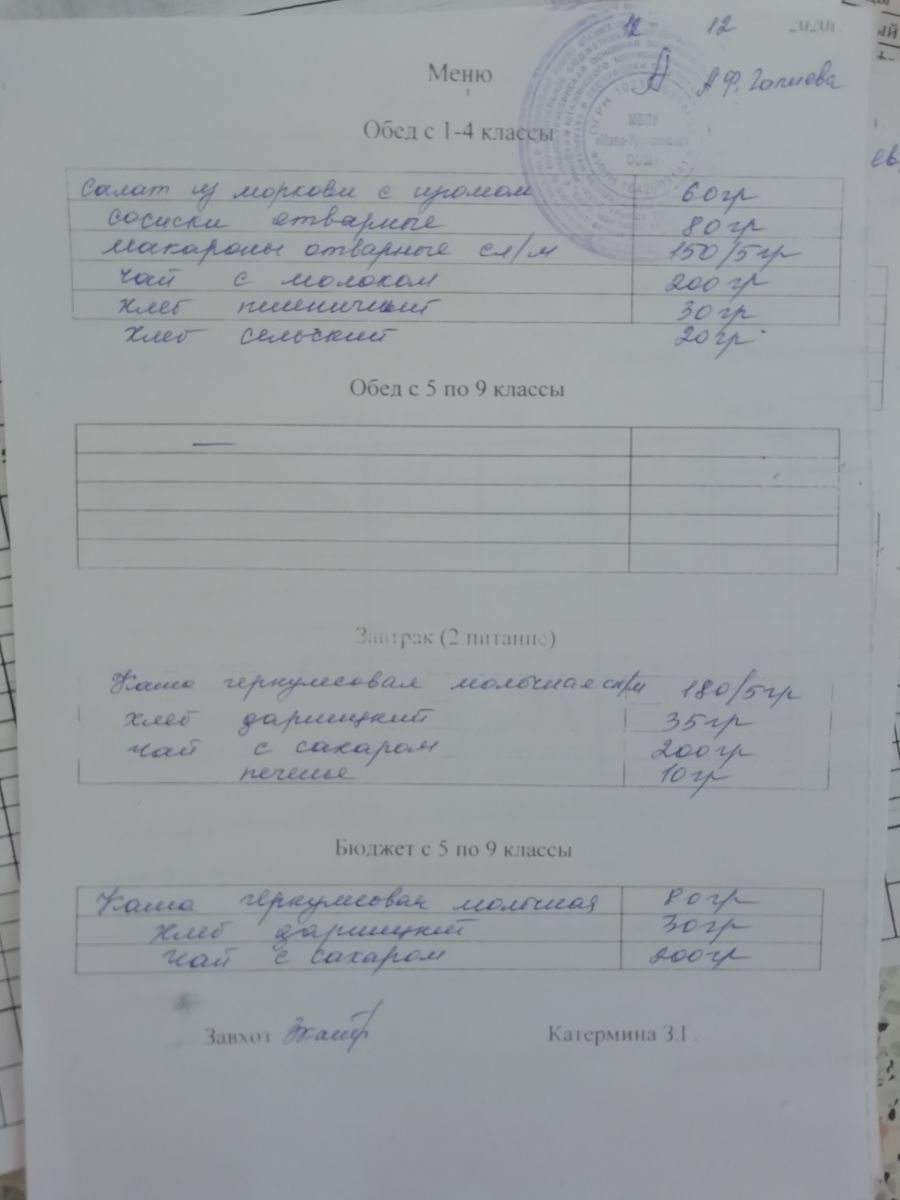 12 12 2020г.
А.Ф. Галиева
Меню
Обед с 1-4 классы
МБОУ
ООШ»
Салат из моркови с изюмом 60гр
Сосиски отварные 80гр
Макароны отварные сл/м 150/5гр
Чай с молоком 200гр
Хлеб пшеничный 30гр
Хлеб сельский 20гр
Обед с 5 по 9 классы
—
Завтрак (2 питание)
Каша геркулесовая молочная сл/м 180/5гр
Хлеб дарницкий 35гр
Чай с сахаром 200гр
печенье 10гр
Бюджет с 5 по 9 классы
Каша геркулесовая молочная 80гр
Хлеб дарницкий 30гр
Чай с сахаром 200гр
Завхоз Катермина З.Г.